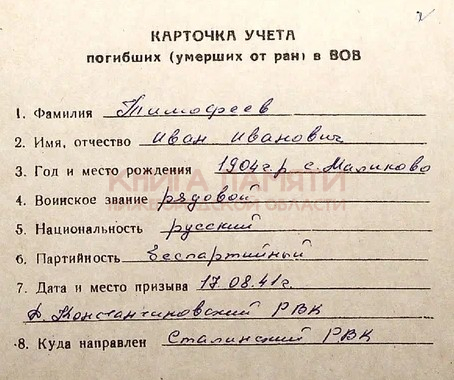 2
КАРТОЧКА УЧЕТА
погибших (умерших от ран) в ВОВ
1. Фамилия Тимофеев
2. Имя, отчество Иван Иванович
3. Год и место рождения 1904г.р с. Маликово
КНИГА ПАМЯТИ
4. Воинское звание рядовой
НИЖЕГОРОДСКОЙ ОБЛАСТИ
5. Национальность русский
6. Партийность беспартийный
7. Дата и место призыва 17.08.41г.
Д. Константиновский РВК
8. Куда направлен Сталинский РВК